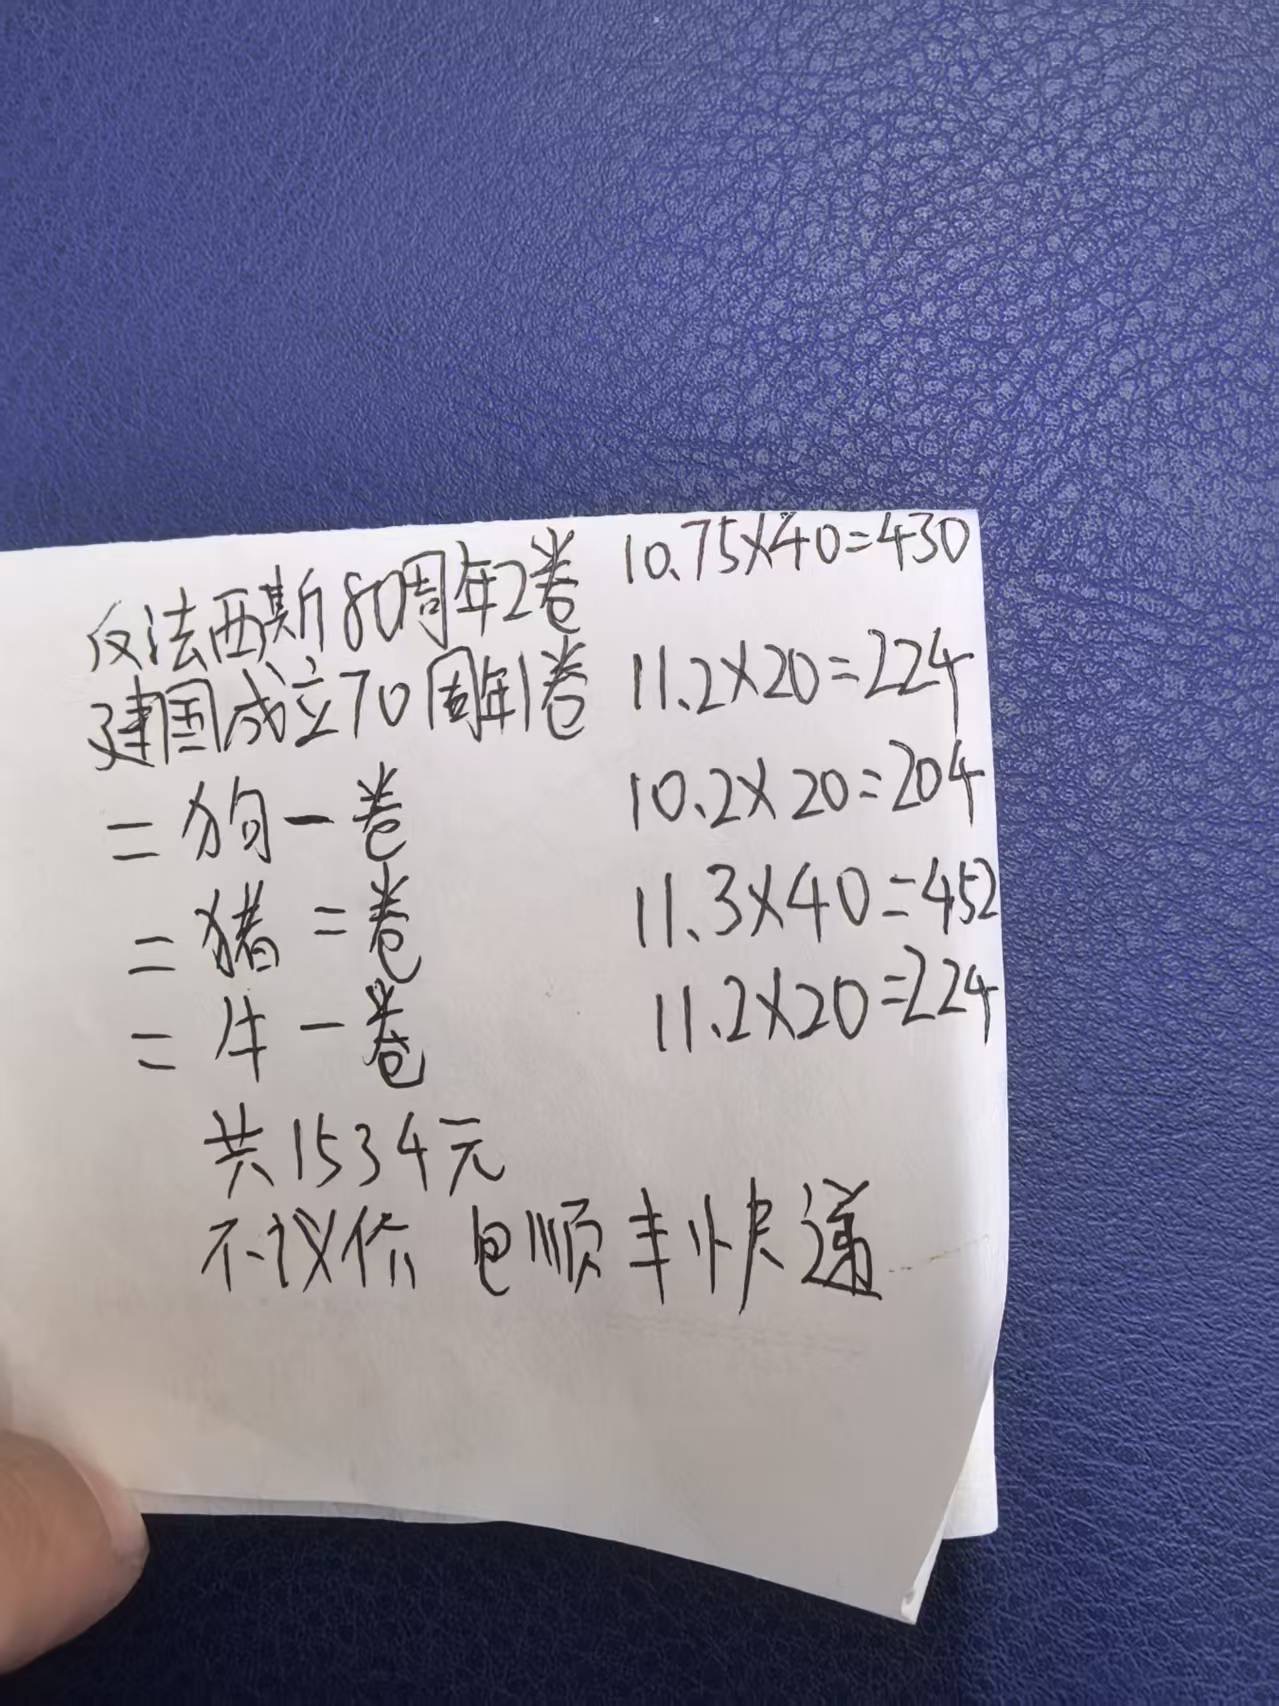 反法西斯80周年2卷 10.75×40=430
建国成立70周年1卷 11.2×20=224
二狗一卷 10.2×20=204
二猪二卷 11.3×40=452
二牛一卷 11.2×20=224
共1534元
不议价 包顺丰快递